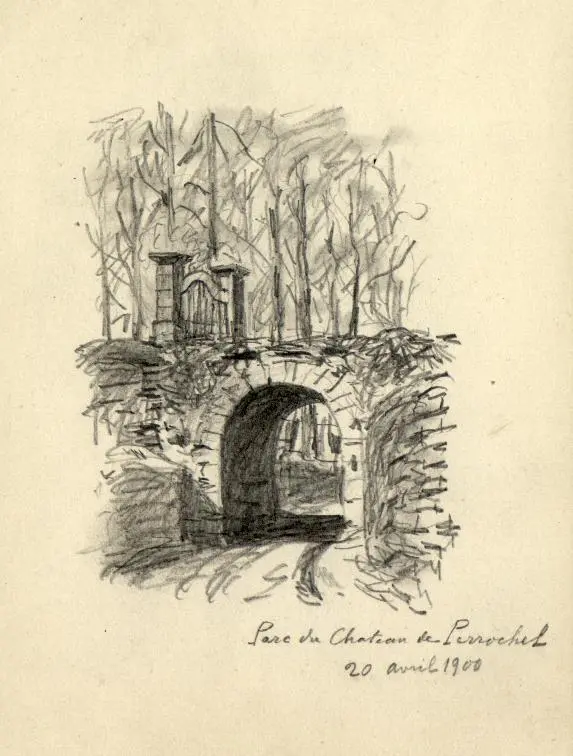 Parc du Chateau de Perrochel
20 avril 1900